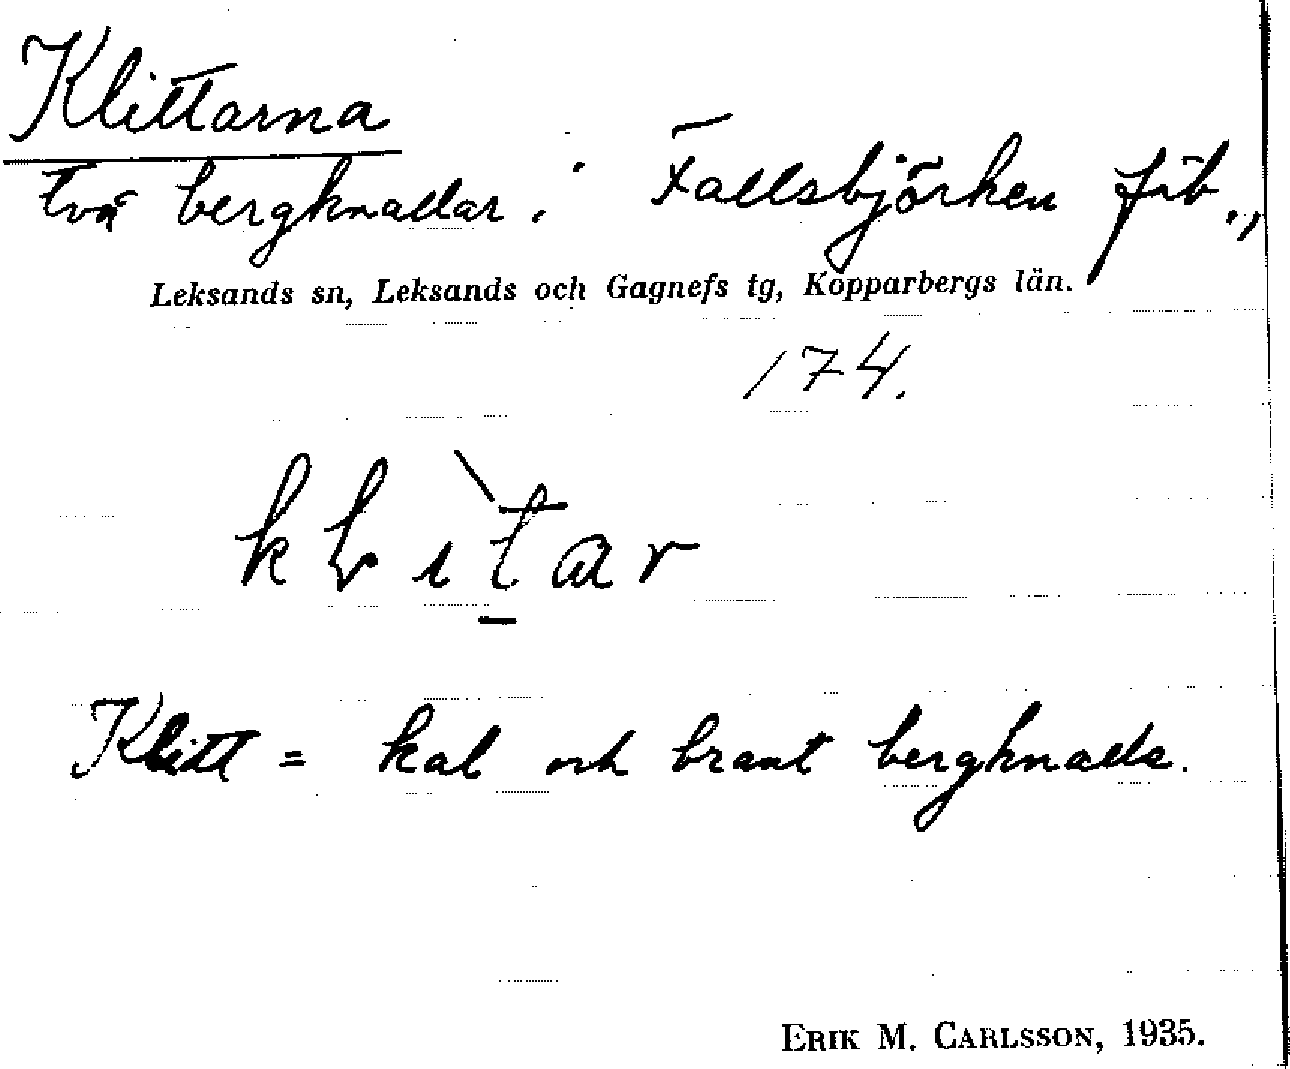 Klittarna
två bergknallar i Fallsbjörken fäb.,
Leksands sn, Leksands och Gagnefs tg, Kopparbergs län.
174.
Klitt = kal och brant bergknalle.
ERIK M. CARLSSON, 1935.